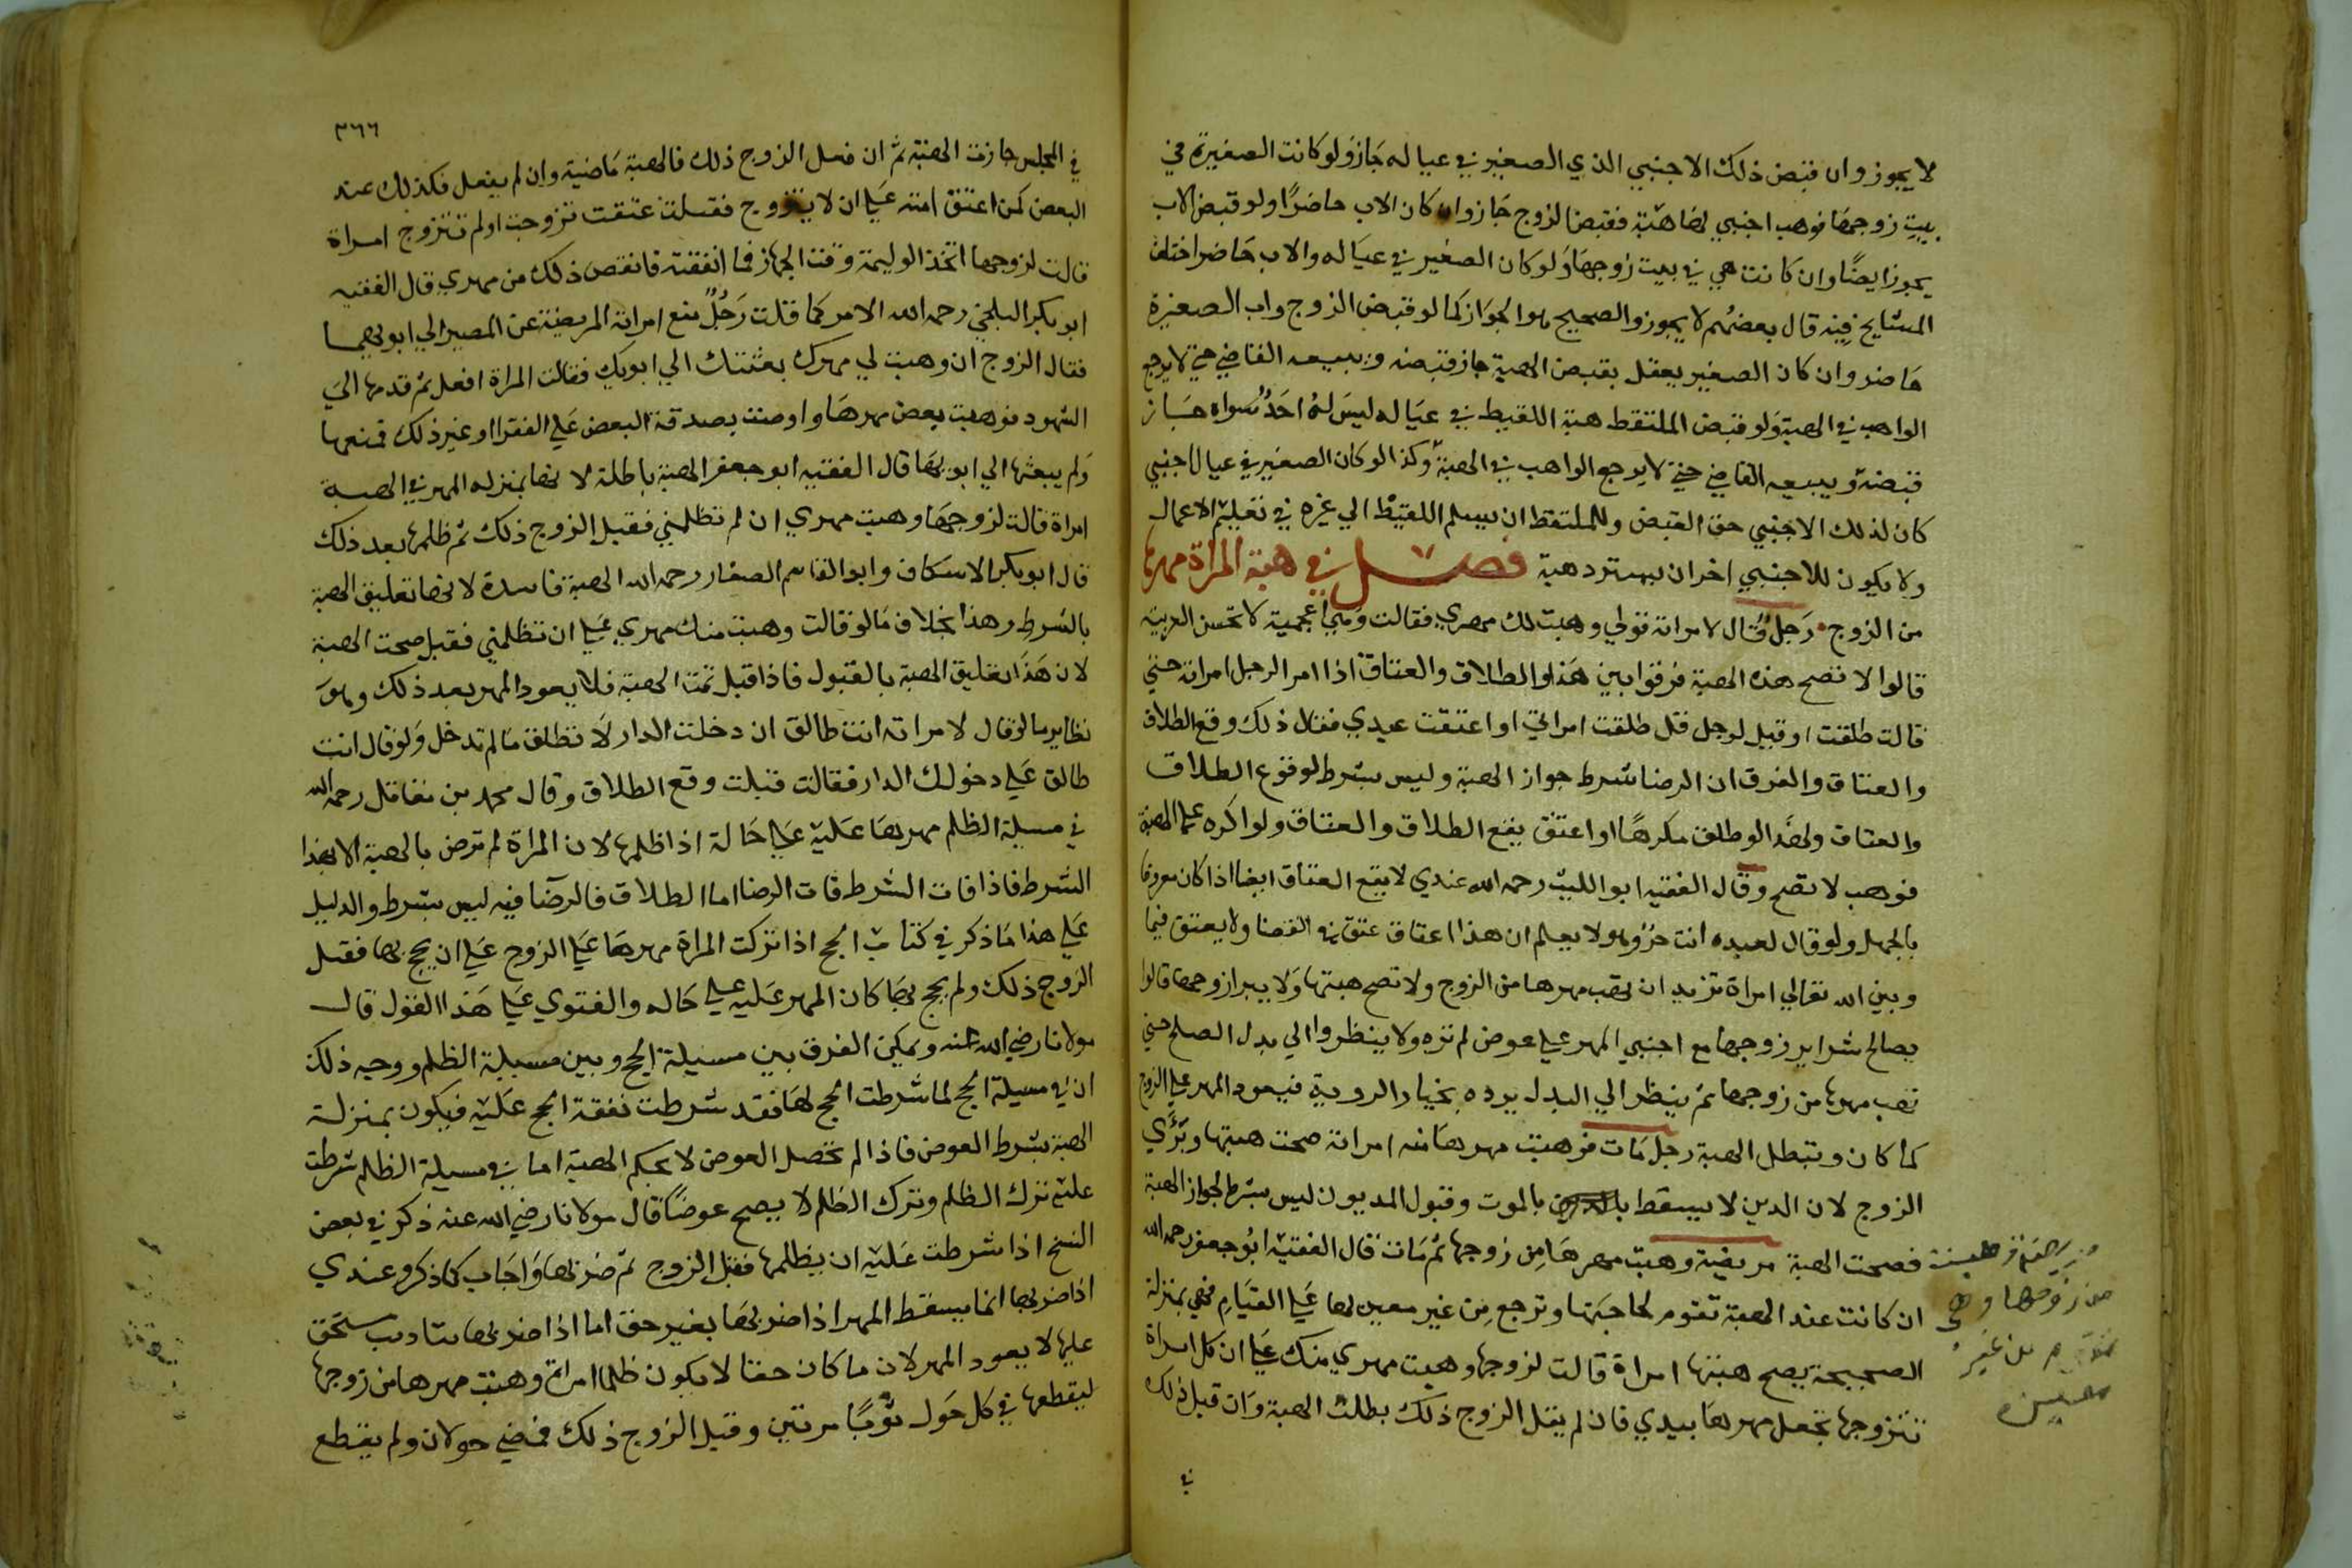 لا يجوز وان قبض ذلك الاجنبي الذي الصغير في عياله جاز ولو كانت الصغيرة في
بيت زوجها فوهب اجنبي لها هبة فقبض الزوج جاز وان كان الاب حاضرا ولو قبض الاب
يجوز ايضا وان كانت هي في بيت زوجها ولو كان الصغير في عياله والاب حاضر اختلف
المشايخ فيه قال بعضهم لا يجوز والصحيح هو الجواز كما لو قبض الزوج واب الصغيرة
حاضر وان كان الصغير يعقل بقبض الهبة جاز قبضه ويبيعه القاضي حتى لا يرجع
الواهب في الهبة ولو قبض الملتقط هبة اللقيط في عياله ليس له احد سواه جاز
قبضه ويبيعه القاضي حتى لا يرجع الواهب في الهبة وكذا لو كان الصغير في عيال اجنبي
كان لذلك الاجنبي حق القبض وللملتقط ان يسلم اللقيط الي غيره في تعليم الاعمال
ولا يكون للاجنبي اخر ان يسترد هبة فصل في هبة المراة مهرها
من الزوج رجل قال لامراته قولي وهبت لك مهري فقالت وهي اعجمية لا تحسن العربيه
قالوا لا تصح هذه الهبة فرقوا بين هذا والطلاق والعتاق اذا امر الرجل امراته حتى
قالت طلقت او قيل لرجل قل طلقت امراتي او اعتقت عبدي فقال ذلك وقع الطلاق
والعتاق والفرق ان الرضا شرط جواز الهبة وليس بشرط لوقوع الطلاق
والعتاق ولهذا لو طلق مكرها او اعتق يقع الطلاق والعتاق ولو اكره علي الهبة
فوهب لا تصح وقال الفقيه ابو الليث رحمه الله عندي لا يقع العتاق ايضا اذا كان معروفا
بالجهل ولو قال لعبده انت حر وهو لا يعلم ان هذا اعتاق عتق في القضا ولا يعتق فيما
وبين الله تعالي امراة تريد ان تهب مهرها من الزوج ولا تصح هبتها ولا يبرا زوجها قالوا
يصالح شرا زوجها مع اجنبي المهر علي عوض لم تره ولا ينظروا الي بدل الصلح حتى
تهب مهرها من زوجها ثم ينظر الي البدل يرده بخيار الروية فيعود المهر علي الزوج
كما كان وتبطل الهبة رجل مات فوهبت مهرها منه امراته صحت هبتها ويبري
الزوج لان الدين لا يسقط بالموت وقبول المديون ليس بشرط لجواز الهبة
فصحت الهبة مريضة وهبت مهرها من زوجها ثم ماتت قال الفقيه ابو جعفر رحمه الله
ان كانت عند الهبة تقوم لحاجتها وترجع من غير معين لها علي القيام فهي بمنزلة
الصحيحة يصح هبتها امراة قالت لزوجها وهبت مهري منك علي ان كل امراة
تتزوجها تجعل مهرها بيدي فان لم يقل الزوج ذلك بطلت الهبة وان قبل ذلك
في
من زوجها وهي
من غير
معين
٣٦٦
في المجلس جازت الهبة ثم ان فعل الزوج ذلك فالهبة ماضية وان لم يفعل فكذلك عند
البعض كمن اعتق امته علي ان لا يتزوج فقبلت عتقت تزوجت او لم تتزوج امراة
قالت لزوجها اتخذ الوليمة وقت الجهاز فما انفقته فانقص ذلك من مهري قال الفقيه
ابو بكر البلخي رحمه الله الامر كما قالت رجل منع امراته المريضة عن المصير الي ابويها
فقال الزوج ان وهبت لي مهرك بعثتك الي ابويك فقالت المراة افعل ثم قدمها الي
الشهود فوهبت بعض مهرها واوصت بصدقة البعض علي الفقرا او غير ذلك فمنعها
ولم يبعثها الي ابويها قال الفقيه ابو جعفر الهبة باطلة لانها بمنزله المهر في الهبة
امراة قالت لزوجها وهبت مهري ان لم تظلمني فقبل الزوج ذلك ثم ظلمها بعد ذلك
قال ابو بكر الاسكاف وابو القاسم الصفار رحمه الله الهبة فاسدة لانها تعليق الهبة
بالشرط وهذا بخلاف ما لو قالت وهبت منك مهري علي ان تظلمني فقبل صحت الهبة
لان هذا تعليق الهبة بالقبول فاذا قبل تمت الهبة فلا يعود المهر بعد ذلك وهو
نظاير ما لو قال لامراته انت طالق ان دخلت الدار لا تطلق ما لم تدخل ولو قال انت
طالق علي دخولك الدار فقالت قبلت وقع الطلاق وقال محمد بن مقاتل رحمه الله
في مسيلة الظلم مهرها عليه علي حالة اذا ظلمها لان المراة لم ترض بالهبة الا بهذا
الشرط فاذا فات الشرط فات الرضا اما الطلاق فالرضا فيه ليس بشرط والدليل
علي هذا ما ذكر في كتاب الحج اذا تركت المراة مهرها علي الزوج علي ان يحج بها فقبل
الزوج ذلك ولم يحج بها كان المهر عليه علي حاله والفتوي علي هذا القول قال
مولانا رضي الله عنه ويمكن الفرق بين مسيلة الحج وبين مسيلة الظلم ووجه ذلك
ان في مسيلة الحج لما شرطت الحج لها فقد شرطت نفقة الحج عليه فيكون بمنزلة
الهبة بشرط العوض فاذا لم تحصل العوض لا يحكم الهبة اما في مسيلة الظلم شرطت
عليه ترك الظلم وترك الظلم لا يصح عوضا قال مولانا رضي الله عنه ذكر في بعض
النسخ اذا شرطت عليه ان يظلمها فقبل الزوج ثم ضربها واجاب كما ذكر وعندي
اذا ضربها انما يسقط المهر اذا ضربها بغير حق اما اذا ضربها بتاديب مستحق
عليها لا يعود المهر لان ما كان حقا لا يكون ظلما امراة وهبت مهرها من زوجها
ليقطعها في كل حول ثوبا مرتين وقبل الزوج ذلك فمضي حولان ولم يقطع